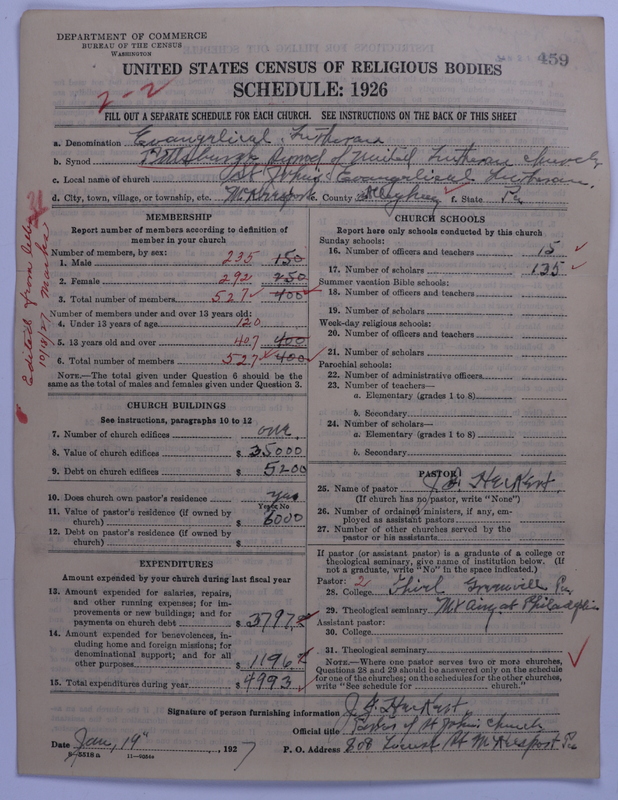 DEPARTMENT OF COMMERCE
BUREAU OF THE CENSUS
WASHINGTON
459
UNITED STATES CENSUS OF RELIGIOUS BODIES
SCHEDULE: 1926
2-2
FILL OUT A SEPARATE SCHEDULE FOR EACH CHURCH. SEE INSTRUCTIONS ON THE BACK OF THIS SHEET
a. Denomination Evangelical Lutheran
b. Synod Pittsburgh Synod of United Lutheran Church
c. Local name of church St John's Evangelical Lutheran.
d. City, town, village, or township, etc. McKeesport e. County Allegheny f. State Pa
MEMBERSHIP
Report number of members according to definition of
member in your church
Number of members, by sex:
1. Male 235 150
2. Female 292 250
3. Total number of members 527 400
Number of members under and over 13 years old:
4. Under 13 years of age 120
5. 13 years old and over 407 400
6. Total number of members 527 400
NOTE.—The total given under Question 6 should be
the same as the total of males and females given under Question 3.
Edited from letter
10/18/27
CHURCH BUILDINGS
See instructions, paragraphs 10 to 12
7. Number of church edifices one
8. Value of church edifices $ 35000
9. Debt on church edifices $ 5200
10. Does church own pastor's residence yes
Yes or No
11. Value of pastor's residence (if owned by
church) $ 6000
12. Debt on pastor's residence (if owned by
church) $
EXPENDITURES
Amount expended by your church during last fiscal year
13. Amount expended for salaries, repairs,
and other running expenses; for im-
provements or new building; and for
payments on church debt $ 3797
14. Amount expended for benevolences, in-
cluding home and foreign missions; for
denominational support; and for all
other purposes $ 1196
15. Total expenditures during year $ 4993
CHURCH SCHOOLS
Report here only schools conducted by this church
Sunday schools:
16. Number of officers and teachers 15
17. Number of scholars 135
Summer vacation Bible schools:
18. Number of officers and teachers
19. Number of scholars
Week-day religious schools:
20. Number of officers and teachers
21. Number of scholars
Parochial schools:
22. Number of administrative officers
23. Number of teachers—
a. Elementary (grades 1 to 8)
b. Secondary
24. Number of scholars—
a. Elementary (grades 1 to 8)
b. Secondary
PASTOR
25. Name of pastor J. F. Herkert.
(If church has no pastor, write "None")
26. Number of ordained ministers, if any, em-
ployed as assistant pastors
27. Number of other churches served by the
pastor or his assistants
If pastor (or assistant pastor) is a graduate of a college or
theological seminary, give name of institution below. (If
not a graduate, write "No" in the space indicated.)
Pastor: 2
28. College Thiel Greenville Pa
29. Theological seminary Mt Airy at Philadelphia
Assistant pastor:
30. College
31. Theological seminary
NOTE.—Where one pastor serves two or more churches,
Questions 28 and 29 should be answered only on the schedule
for one of the churches; on the schedules for the other churches,
write "See schedule for ........ church."
Signature of person furnishing information J. F. Herkert
Official title Pastor of St John's Church
Date Jan, 19", 1927 P. O. Address 808 Locust St McKeesport Pa